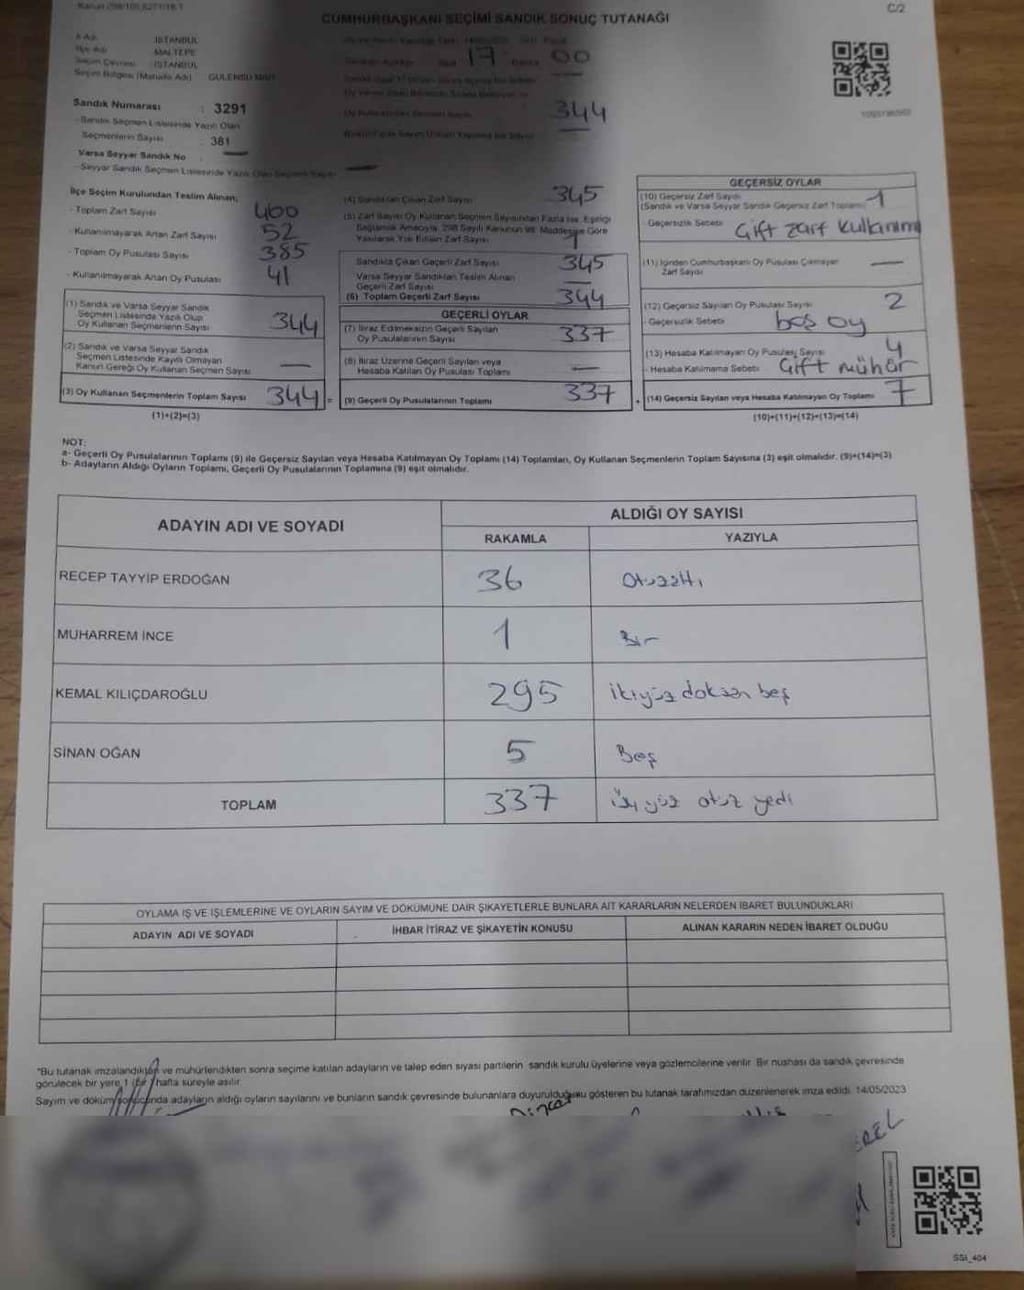 C/2
CUMHURBAŞKANI SEÇİMİ SANDIK SONUÇ TUTANAĞI
İSTANBUL
MALTEPE
İSTANBUL
Seçim Bölgesi (Mahalle Adı) GÜLENSU MAH.
17 00
Sandık Numarası : 3291
- Sandık Seçmen Listesinde Yazılı Olan
Seçmenlerin Sayısı : 381
Varsa Seyyar Sandık No : —
- Seyyar Sandık Seçmen Listesinde Yazılı Olan Seçmen Sayısı —
344
İlçe Seçim Kurulundan Teslim Alınan;
- Toplam Zarf Sayısı 400
- Kullanılmayarak Artan Zarf Sayısı 52
- Toplam Oy Pusulası Sayısı 385
- Kullanılmayarak Artan Oy Pusulası 41
(1) Sandık ve Varsa Seyyar Sandık
Seçmen Listesinde Yazılı Olup
Oy Kullanan Seçmenlerin Sayısı 344
(2) Sandık ve Varsa Seyyar Sandık
Seçmen Listesinde Kayıtlı Olmayan
Kanun Gereği Oy Kullanan Seçmen Sayısı —
(3) Oy Kullanan Seçmenlerin Toplam Sayısı 344
(1)+(2)=(3)
(4) Sandıktan Çıkan Zarf Sayısı 345
(5) Zarf Sayısı Oy Kullanan Seçmen Sayısından Fazla ise, Eşitliği
Sağlamak Amacıyla, 298 Sayılı Kanunun 98. Maddesine Göre
Yakılarak Yok Edilen Zarf Sayısı 1
Sandıkta Çıkan Geçerli Zarf Sayısı 345
Varsa Seyyar Sandıktan Teslim Alınan
Geçerli Zarf Sayısı —
(6) Toplam Geçerli Zarf Sayısı 344
GEÇERLİ OYLAR
(7) İtiraz Edilmeksizin Geçerli Sayılan
Oy Pusulalarının Sayısı 337
(8) İtiraz Üzerine Geçerli Sayılan veya
Hesaba Katılan Oy Pusulası Toplamı —
(9) Geçerli Oy Pusulalarının Toplamı 337
GEÇERSİZ OYLAR
(10) Geçersiz Zarf Sayısı
(Sandık ve Varsa Seyyar Sandık Geçersiz Zarf Toplamı) 1
- Geçersizlik Sebebi Çift zarf kullanımı
(11) İçinden Cumhurbaşkanı Oy Pusulası Çıkmayan
Zarf Sayısı —
(12) Geçersiz Sayılan Oy Pusulası Sayısı 2
- Geçersizlik Sebebi boş oy
(13) Hesaba Katılmayan Oy Pusulası Sayısı 4
- Hesaba Katılmama Sebebi Çift mühür
(14) Geçersiz Sayılan veya Hesaba Katılmayan Oy Toplamı 7
(10)+(11)+(12)+(13)=(14)
NOT:
a- Geçerli Oy Pusulalarının Toplamı (9) ile Geçersiz Sayılan veya Hesaba Katılmayan Oy Toplamı (14) Toplamları, Oy Kullanan Seçmenlerin Toplam Sayısına (3) eşit olmalıdır. (9)+(14)=(3)
b- Adayların Aldığı Oyların Toplamı, Geçerli Oy Pusulalarının Toplamına (9) eşit olmalıdır.
ADAYIN ADI VE SOYADI
ALDIĞI OY SAYISI
RAKAMLA YAZIYLA
RECEP TAYYİP ERDOĞAN 36 Otuzaltı
MUHARREM İNCE 1 Bir
KEMAL KILIÇDAROĞLU 295 ikiyüz doksan beş
SİNAN OĞAN 5 Beş
TOPLAM 337 üçyüz otuz yedi
OYLAMA İŞ VE İŞLEMLERİNE VE OYLARIN SAYIM VE DÖKÜMÜNE DAİR ŞİKAYETLERLE BUNLARA AİT KARARLARIN NELERDEN İBARET BULUNDUKLARI
ADAYIN ADI VE SOYADI İHBAR İTİRAZ VE ŞİKAYETİN KONUSU ALINAN KARARIN NEDEN İBARET OLDUĞU
"Bu tutanak imzalandıktan ve mühürlendikten sonra seçime katılan adayların ve talep eden siyasi partilerin sandık kurulu üyelerine veya gözlemcilerine verilir. Bir nüshası da sandık çevresinde
görülecek bir yere 1 (bir) hafta süreyle asılır.
Sayım ve döküm sonucunda adayların aldığı oyların sayılarını ve bunların sandık çevresinde bulunanlara duyurulduğunu gösteren bu tutanak tarafımızdan düzenlenerek imza edildi. 14/05/2023
SSI_404